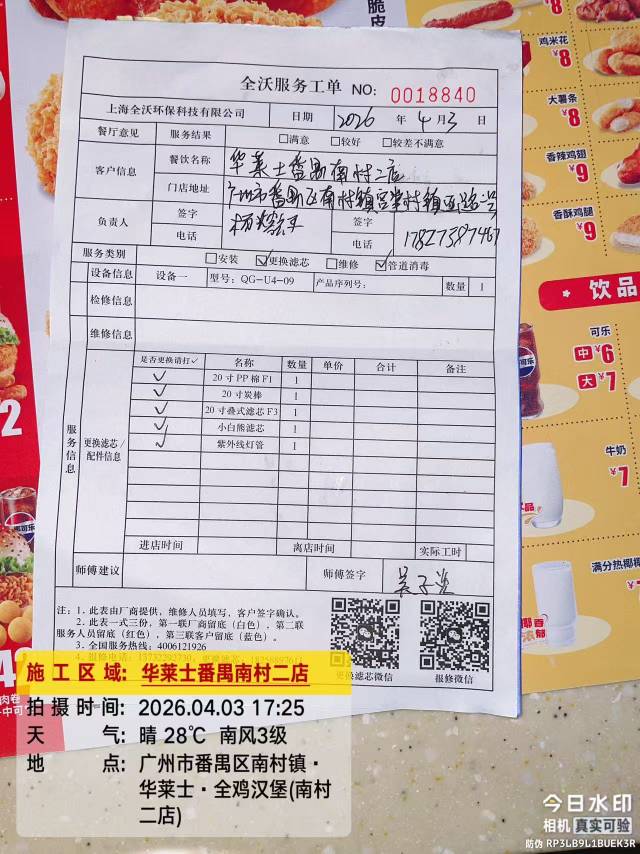 全沃服务工单 NO: 0018840
上海全沃环保科技有限公司 日期 2026 年 4 月 3 日
餐厅意见 服务结果 □满意 □较好 □较差不满意
客户信息 餐饮名称 华莱士番禺南村二店
门店地址 广州市番禺区南村镇
负责人 签字 签字
电话 电话 17827387467
服务类别 □安装 ☑更换滤芯 □维修 ☑管道消毒
设备信息 设备一 型号: QG-U4-09 产品序列号: 数量 1
检修信息
维修信息
服务信息
更换滤芯/配件信息
是否更换请打✓ 名称 数量 单价 合计 备注
✓ 20寸PP棉F1 1
✓ 20寸炭棒 1
✓ 20寸叠式滤芯F3 1
✓ 小白熊滤芯 1
✓ 紫外线灯管 1
进店时间 离店时间 实际工时
师傅建议 师傅签字
注: 1. 此表由厂商提供, 维修人员填写, 客户签字确认。
2. 此表一式三份, 第一联厂商留底(白色), 第二联
服务人员留底(红色), 第三联客户留底(蓝色)。
3. 全国服务热线: 4006121926
更换滤芯微信 报修微信
施工区域: 华莱士番禺南村二店
拍摄时间: 2026.04.03 17:25
天 气: 晴 28℃ 南风3级
地 点: 广州市番禺区南村镇·
华莱士·全鸡汉堡(南村
二店)
今日水印
相机 真实可验
防伪 RP3LB9L1BUEK3R
脆皮
¥8
鸡米花
¥8
大薯条
¥8
香辣鸡翅
¥9
香酥鸡腿
¥9
饮品
可乐
中¥6
大¥7
牛奶
¥7
满分热椰椰